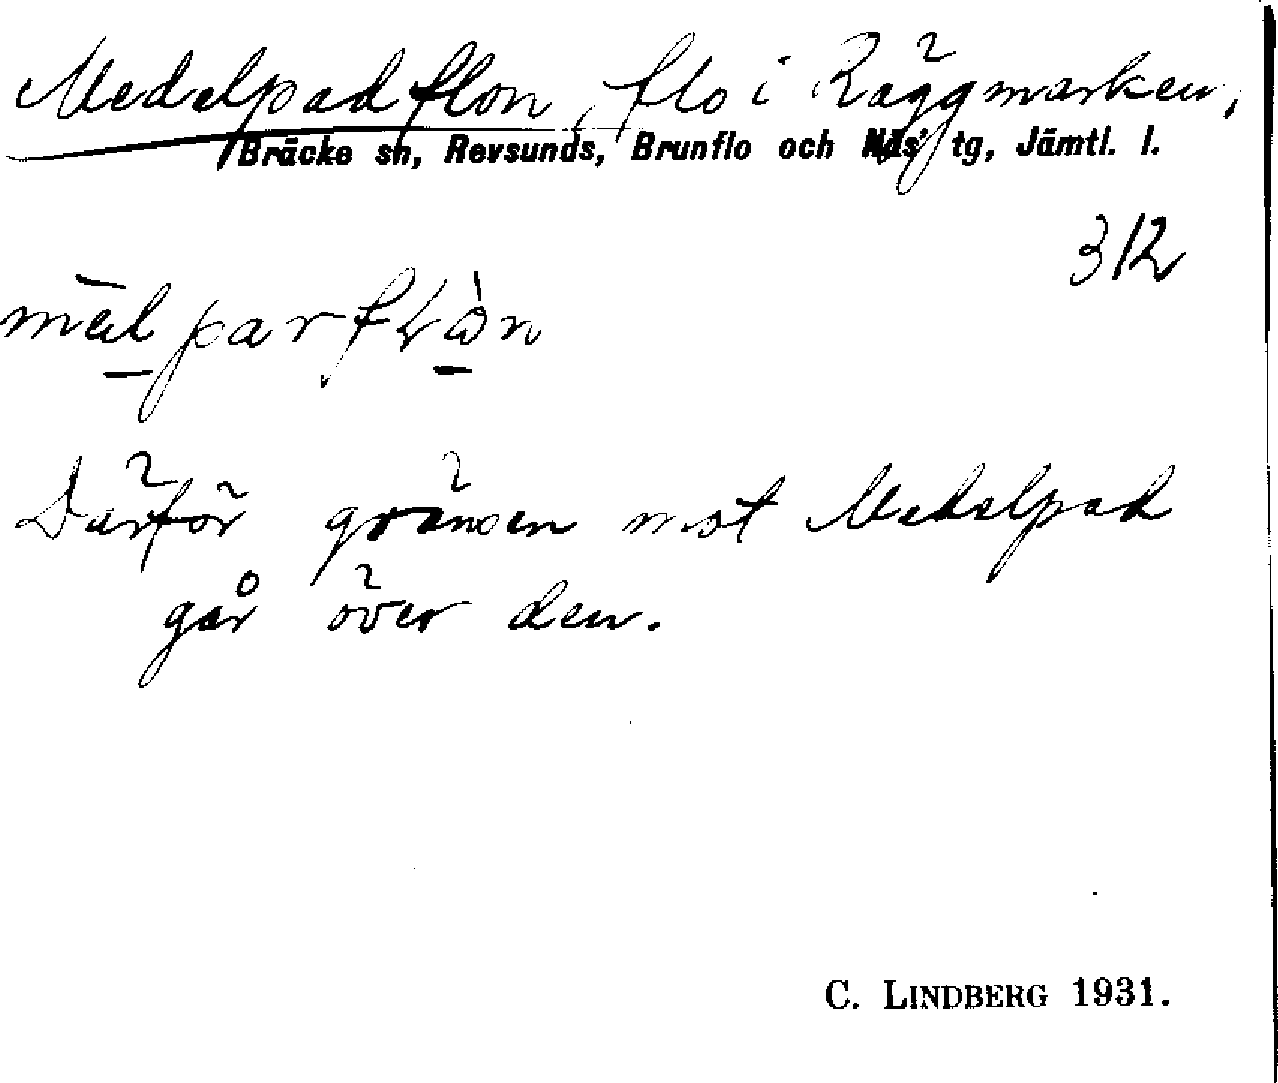 Medelpadflon, flo i Räggmarken,
Bräcke sn, Revsunds, Brunflo och Näs' tg, Jämtl. l.
312
Därför gränsen mot Medelpad
går över den.
C. LINDBERG 1931.